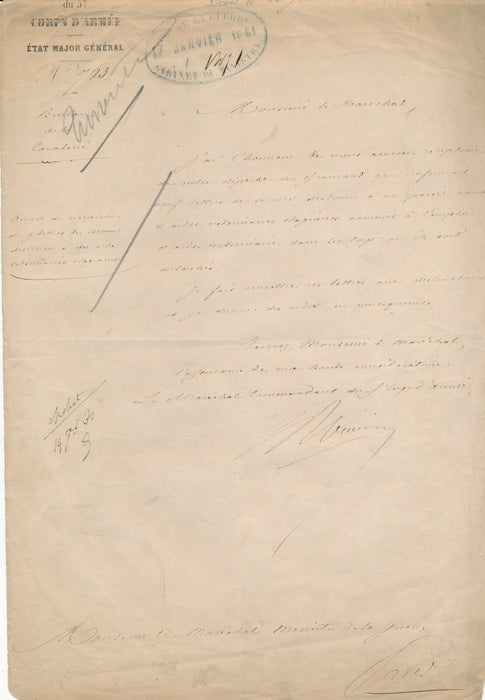 du 5e
CORPS D'ARMÉE
ÉTAT MAJOR GÉNÉRAL
DE LA GUERRE
17 JANVIER 1861
CABINET DU MINISTRE
Cavalerie
Monsieur le Maréchal,
J'ai l'honneur de vous accuser réception
de votre dépêche du courant qui renfermait
neuf lettres de service destinées à un pareil nombre
d'aides vétérinaires stagiaires nommés à l'emploi
d'aide vétérinaire dans les corps où ils sont
détachés.
Je fais remettre ces lettres aux destinataires
et je donne des ordres en conséquence.
Accusé de réception
de 9 lettres de service
destinées à des aides
vétérinaires stagiaires
Monsieur le Maréchal,
l'assurance de ma haute considération.
Le Maréchal Commandant du 5e Corps d'Armée
Monsieur le Maréchal Ministre de la Guerre
Paris